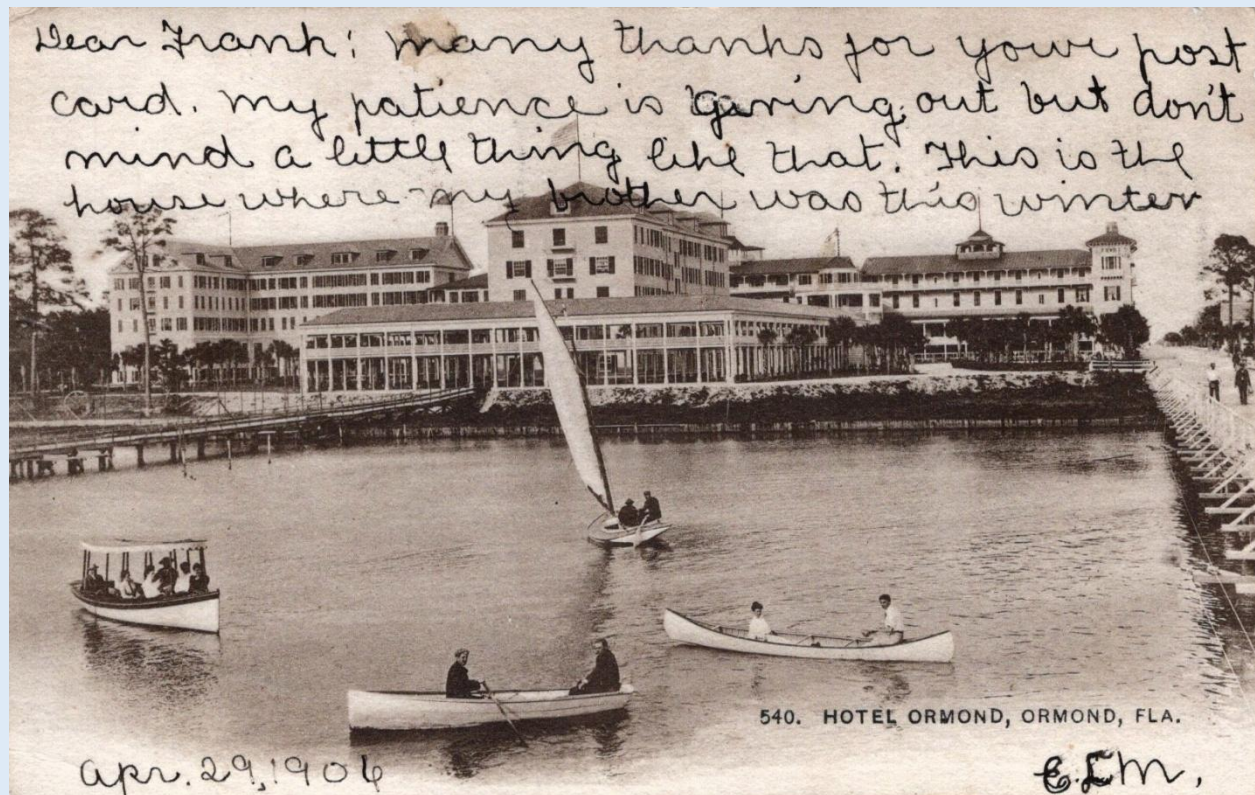 Dear Frank: Many thanks for your post
card. My patience is giving out but don't
mind a little thing like that. This is the
house where my brother was this winter
540. HOTEL ORMOND, ORMOND, FLA.
Apr. 29, 1906
E.L.M.